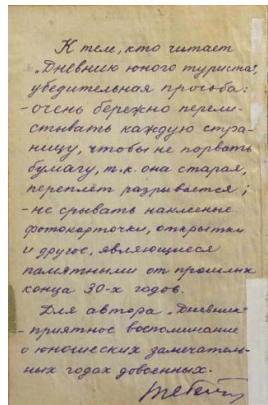 К тем, кто читает
„Дневник юного туриста",
убедительная просьба:
- очень бережно перели-
стывать каждую стра-
ницу, чтобы не порвать
бумагу, т.к. она старая,
переплёт разрывается;
- не срывать наклееные
фотокарточки, открытки
и другое, являющиеся
памятными от прошлых
конца 30-х годов.
Для автора „Дневник"
- приятное воспоминание
о юношеских замечатель-
ных годах довоенных.